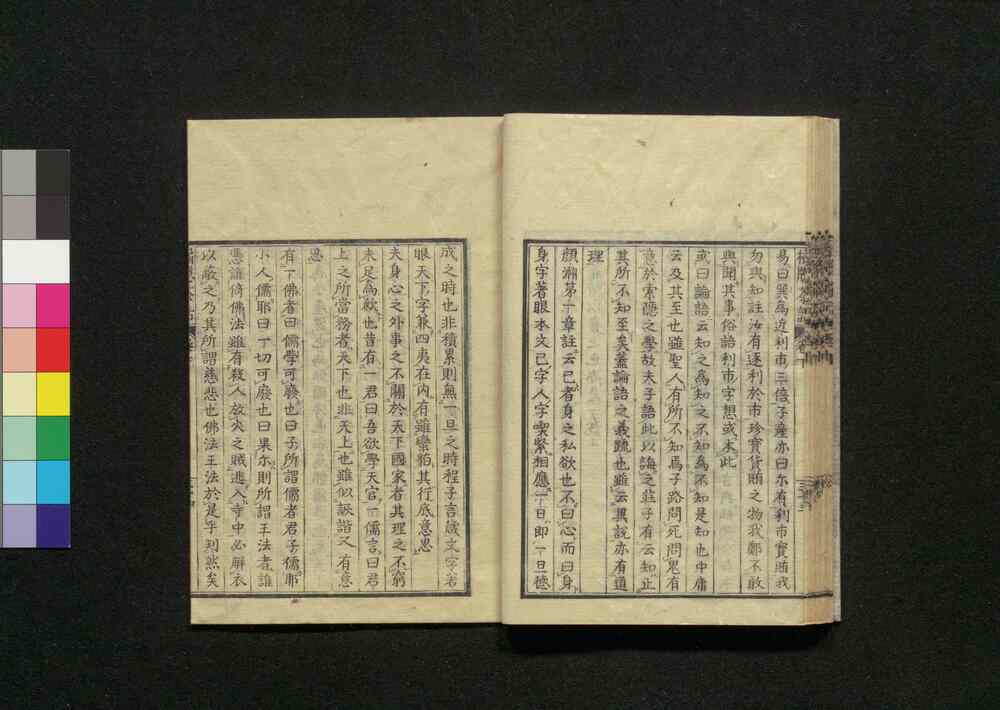 易曰巽爲近利市三倍子産亦曰尓有利市寳賄我
勿與知註汝有逐利於市珍寳貨賄之物我鄭不敢
與聞其事俗語利市字想或本此
或曰論語云知之爲知之不知爲不知是知也中庸
云及其至也雖聖人有所不知焉子路問死問鬼有
意於索隠之學故夫子語此以誨之莊子有云知止
其所不知至矣蓋論語之義疏也雖云異説亦有道
理
顔淵第一章註云己者身之私欲也不曰心而曰身
身字著眼本文己字人字喫緊相應一日即一旦德
成之時也非積累則無一旦之時程子言箴文字着
眼天下字兼四夷在内有雖蠻貊其行底意思
夫身心之外事之不關於天下國家者其理之不窮
未足爲歉也昔有一君曰吾欲學天官一儒言曰君
上之所當務者天下也非天上也雖似詼諧又有意
思
有一佛者曰儒學可廢也曰子所謂儒者君子儒耶
小人儒耶曰一切可廢也曰果尓則所謂王法者誰
憑誰倚佛法雖有殺人放火之賊進入寺中必解衣
以蔽之乃其所謂慈悲也佛法王法於是乎判然矣